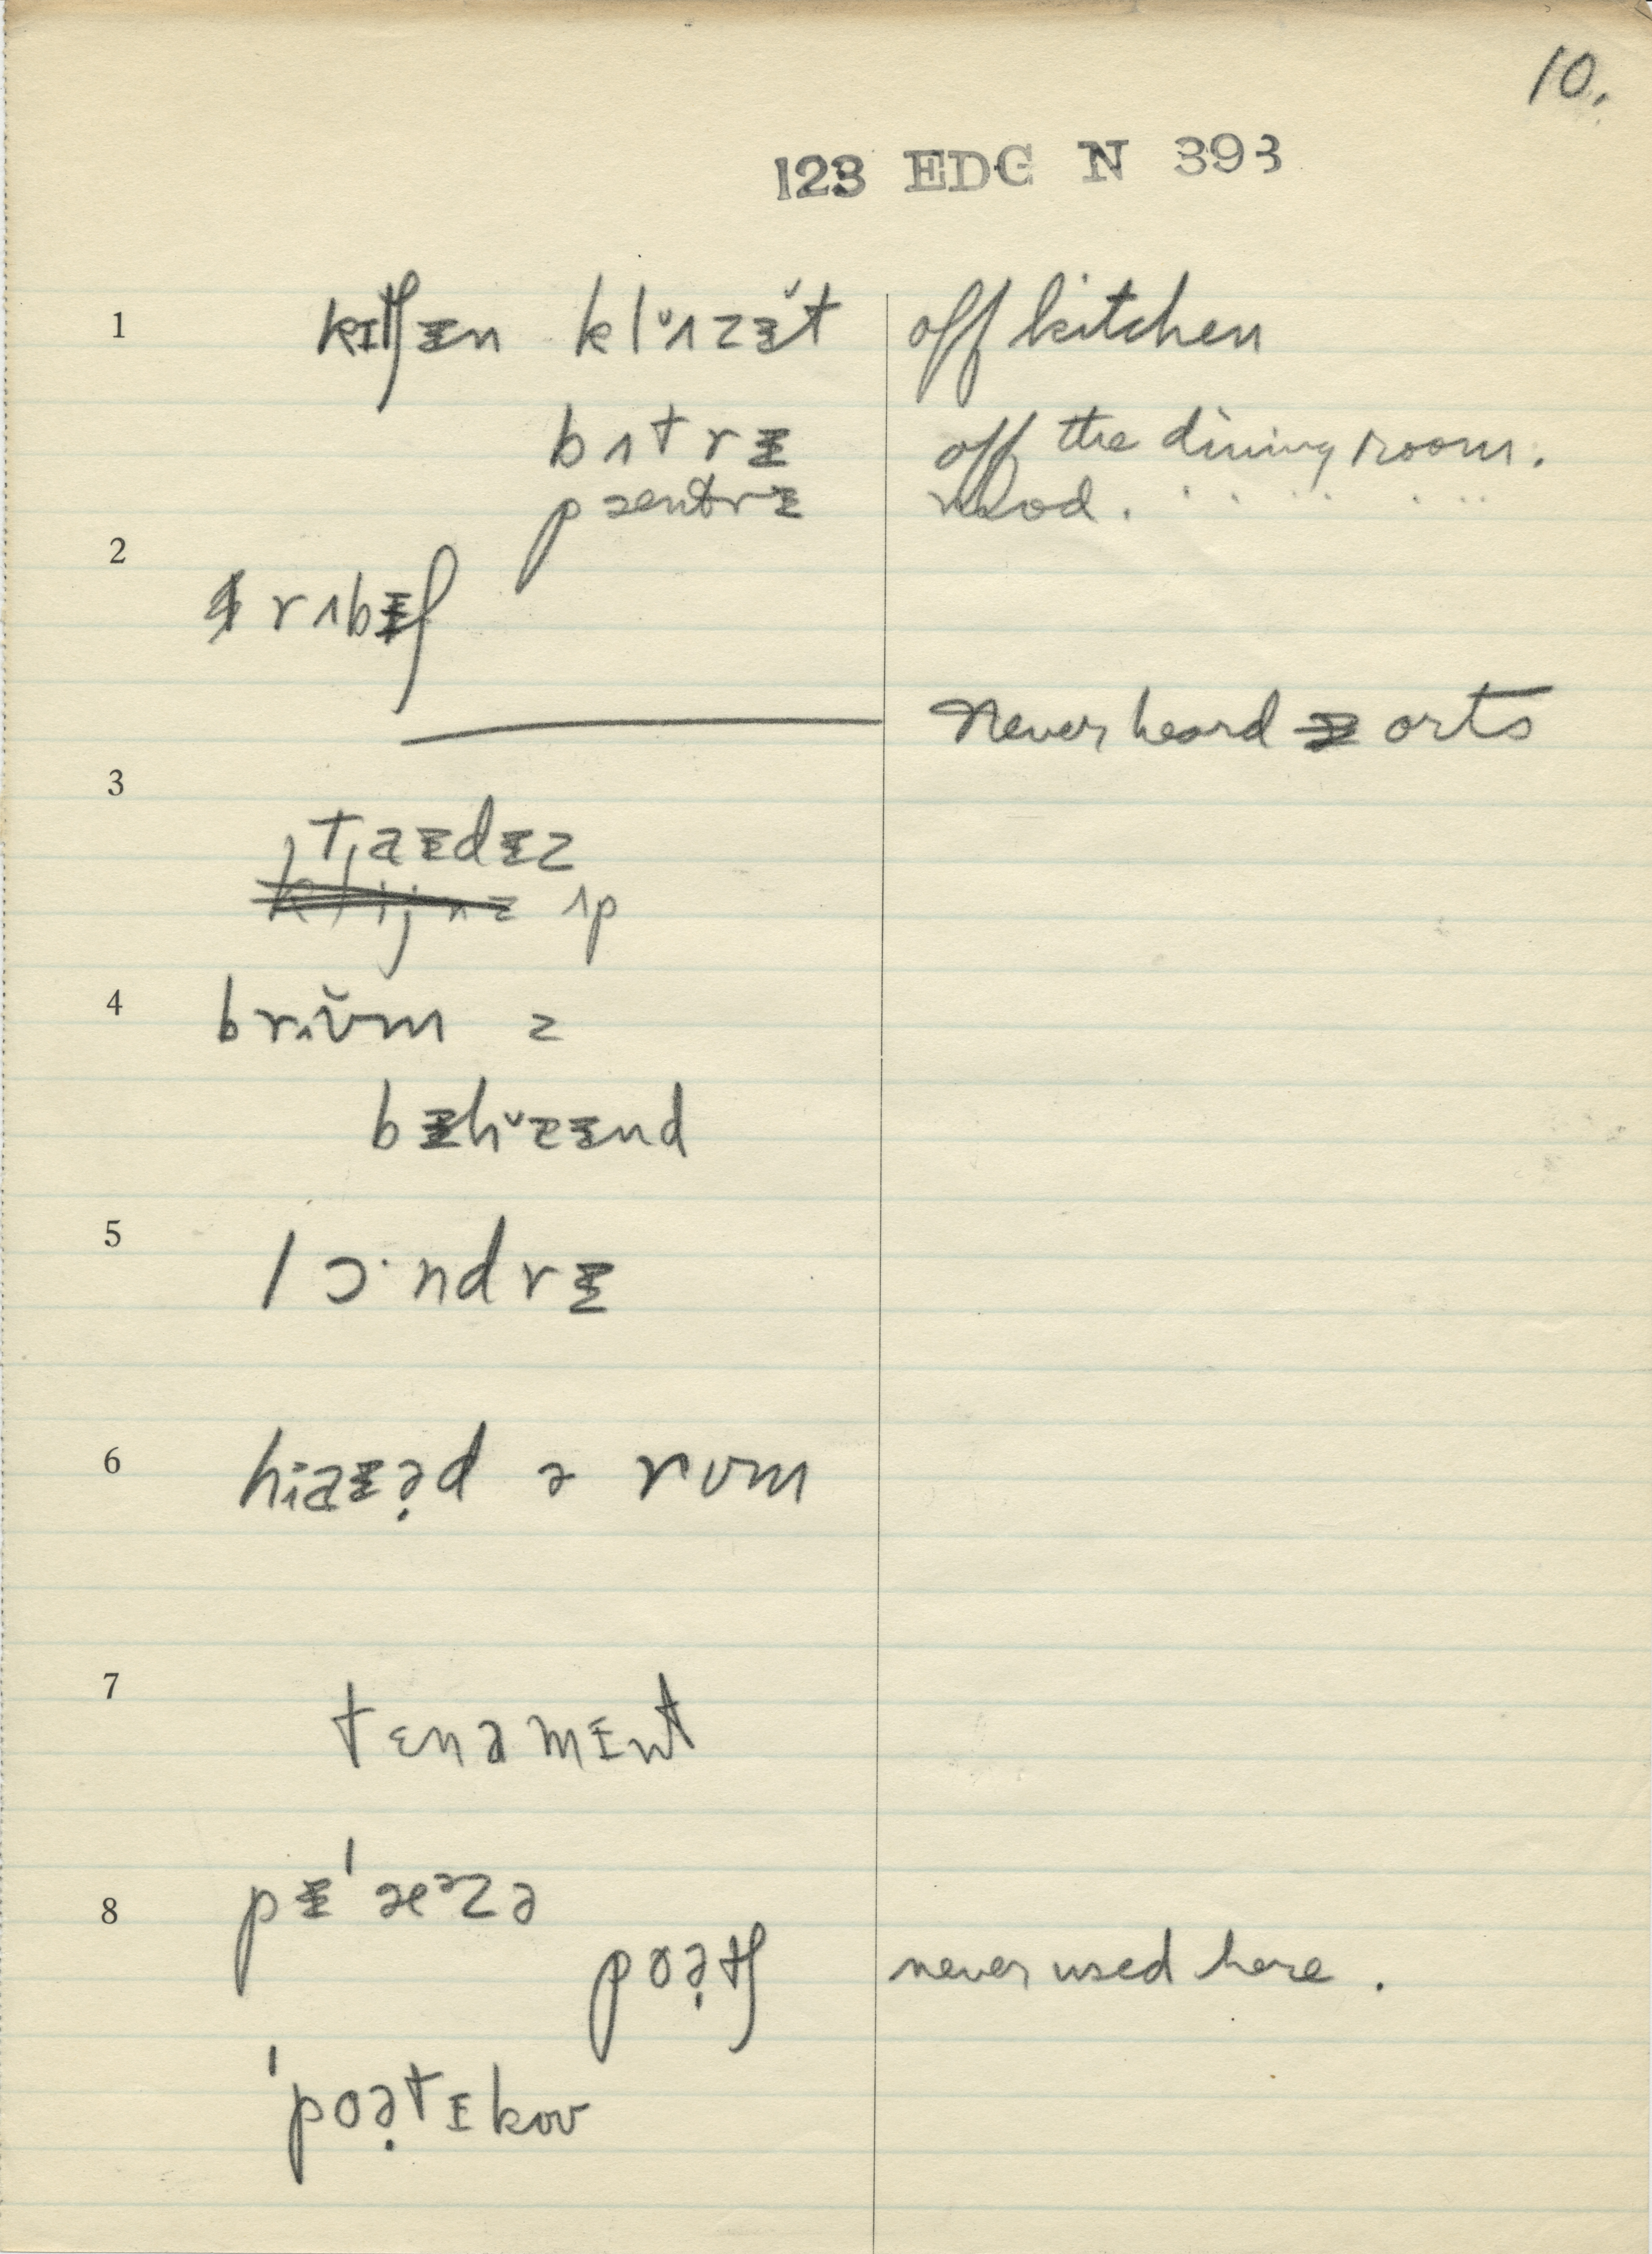 10.
123 EDG N 393
1 kɪtʃɪ̵n klʌ̆zɪ̵t off kitchen
bʌtrɪ̵ off the dining room.
pæntrɪ̵ mod. " " " "
2
rʌbɪ̵ʃ
Never heard orts
3
taɪ̵dɪ̵z
ʌp
4 brʊ̆m z
bɪ̵hɪ̵nd
5 lɔ·ndrɪ̵
6 haɪ̵ə̣d ə rʊm
7
tɛnəmɪnt
8 pɪ̵ˈæzə
poə̣tʃ never used here.
ˈpoə̣tɪkoʊ